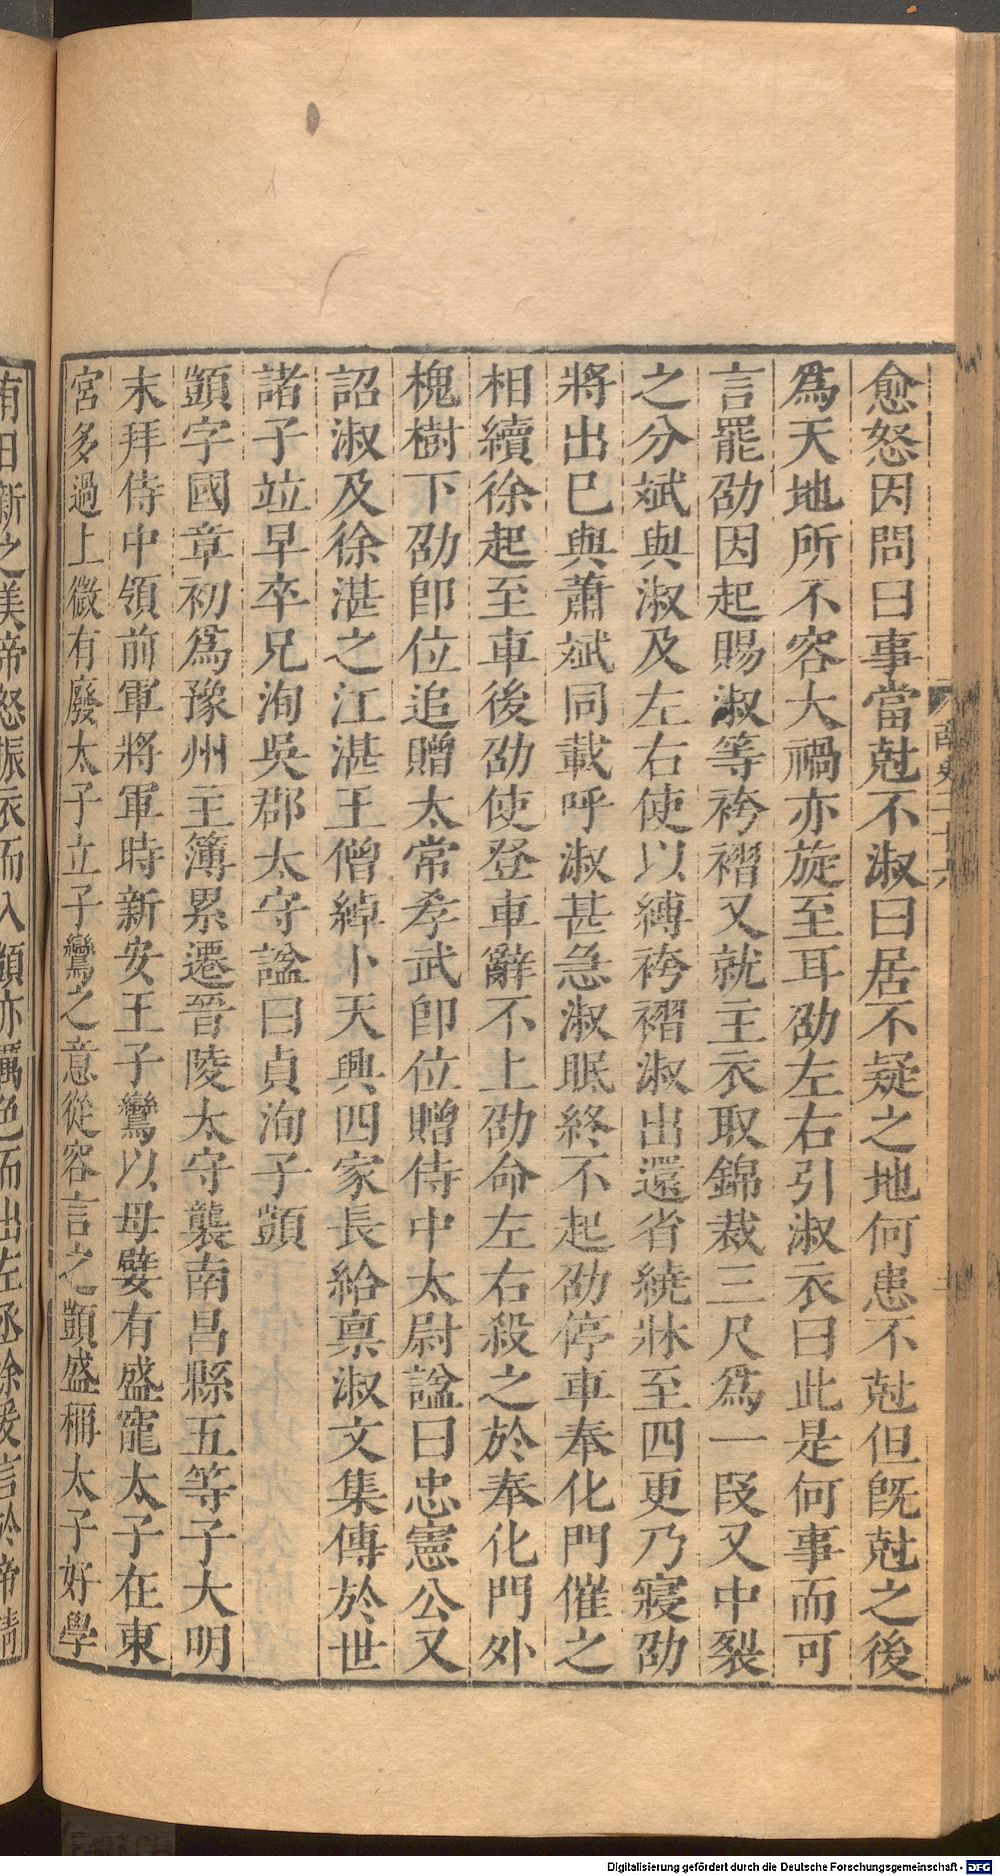 愈怒因問曰事當尅不淑曰居不疑之地何患不尅但旣尅之後
爲天地所不容大禍亦旋至耳劭左右引淑衣曰此是何事而可
言罷劭因起賜淑等袴褶又就主衣取錦裁三尺爲一段又中裂
之分斌與淑及左右使以縛袴褶淑出還省繞牀至四更乃寢劭
將出已與蕭斌同載呼淑甚急淑眠終不起劭停車奉化門催之
相續徐起至車後劭使登車辭不上劭命左右殺之於奉化門外
槐樹下劭卽位追贈太常孝武卽位贈侍中太尉諡曰忠憲公又
詔淑及徐湛之江湛王僧綽卜天興四家長給稟淑文集傳於世
諸子竝早卒兄洵吳郡太守諡曰貞洵子顗
顗字國章初爲豫州主簿累遷晉陵太守襲南昌縣五等子大明
末拜侍中領前軍將軍時新安王子鸞以母嬖有盛寵太子在東
宮多過上微有廢太子立子鸞之意從容言之顗盛稱太子好學
有日新之美帝怒振衣而入顗亦厲色而出左丞徐爰言於帝請
南史二十六
Digitalisierung gefördert durch die Deutsche Forschungsgemeinschaft - DFG